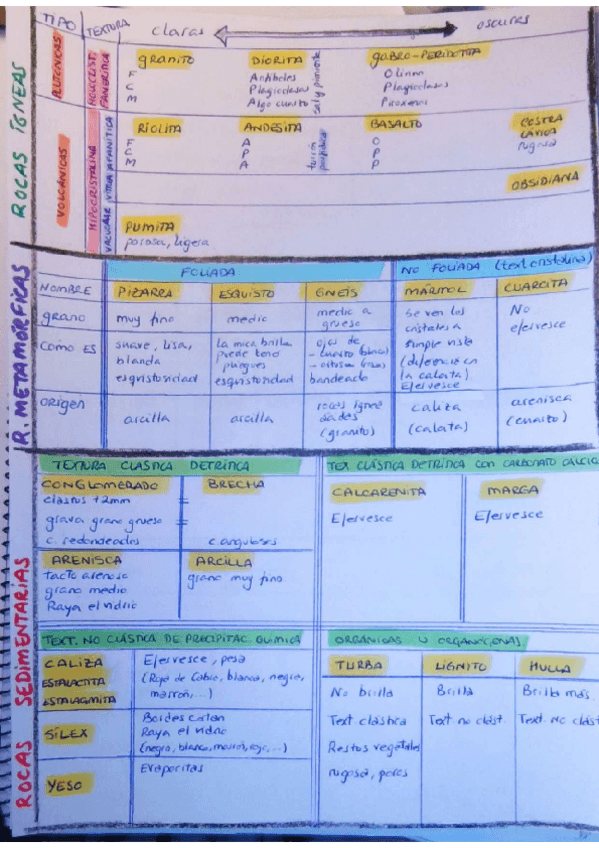 TIPO TEXTURA claras oscuras
ROCAS ÍGNEAS
PLUTÓNICAS
VOLCÁNICAS
HIPOCRISTALINA
VITREA AFANÍTICA
GRANITO DIORITA GABRO-PERIDOTITA
F Anfíboles Olivino
C Plagioclasas Plagioclasas
M Algo cuarzo Piroxenos
sal y pimienta
RIOLITA ANDESITA BASALTO COSTRA LÁVICA
F A O rugosa
C P P
M A P
OBSIDIANA
PUMITA
porosa, ligera
R. METAMÓRFICAS
FOLIADA NO FOLIADA (text cristalina)
NOMBRE PIZARRA ESQUISTO GNEIS MÁRMOL CUARCITA
grano muy fino medio medio a grueso
Se ven los cristales a simple vista (diferencia en la calcita) Efervesce
No efervesce
COMO ES suave, lisa, blanda esquistosidad
La mica brilla, puede tener pliegues esquistosidad
ojos de
bandeado
ORIGEN arcilla arcilla
(granito)
caliza (calcita)
arenisca (cuarzo)
ROCAS SEDIMENTARIAS
TEXTURA CLÁSTICA DETRÍTICA
TEX CLÁSTICA DETRÍTICA con CARBONATO CALCICO
CONGLOMERADO BRECHA
clastos +2mm =
grava grano grueso =
c. redondeados c. angulosos
CALCARENITA MARGA
Efervesce Efervesce
ARENISCA ARCILLA
tacto arenoso grano muy fino
grano medio
Raya el vidrio
TEXT. NO CLÁSTICA DE PRECIPITAC. QUIMICA
ORGÁNICAS U ORGANÓGENAS.
CALIZA
ESTALACTITA
ESTALAGMITA
Efervesce, pesa
marrón,...)
SÍLEX
Bordes cortan
Raya el vidrio
YESO Evaporitas
TURBA LIGNITO HULLA
No brilla Brilla Brilla más.
Text clástica Text no clást. Text. no clást
Restos vegetales
rugosa, poros